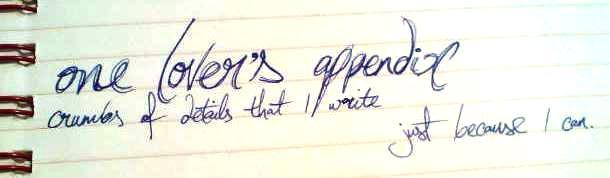 one lover's appendix
crumbs of details that I write
just because I can.